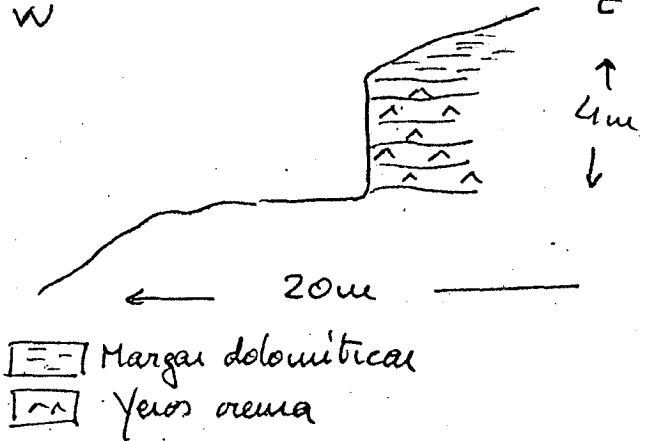 W E
4m
20m
Margas dolomíticas
Yesos crema